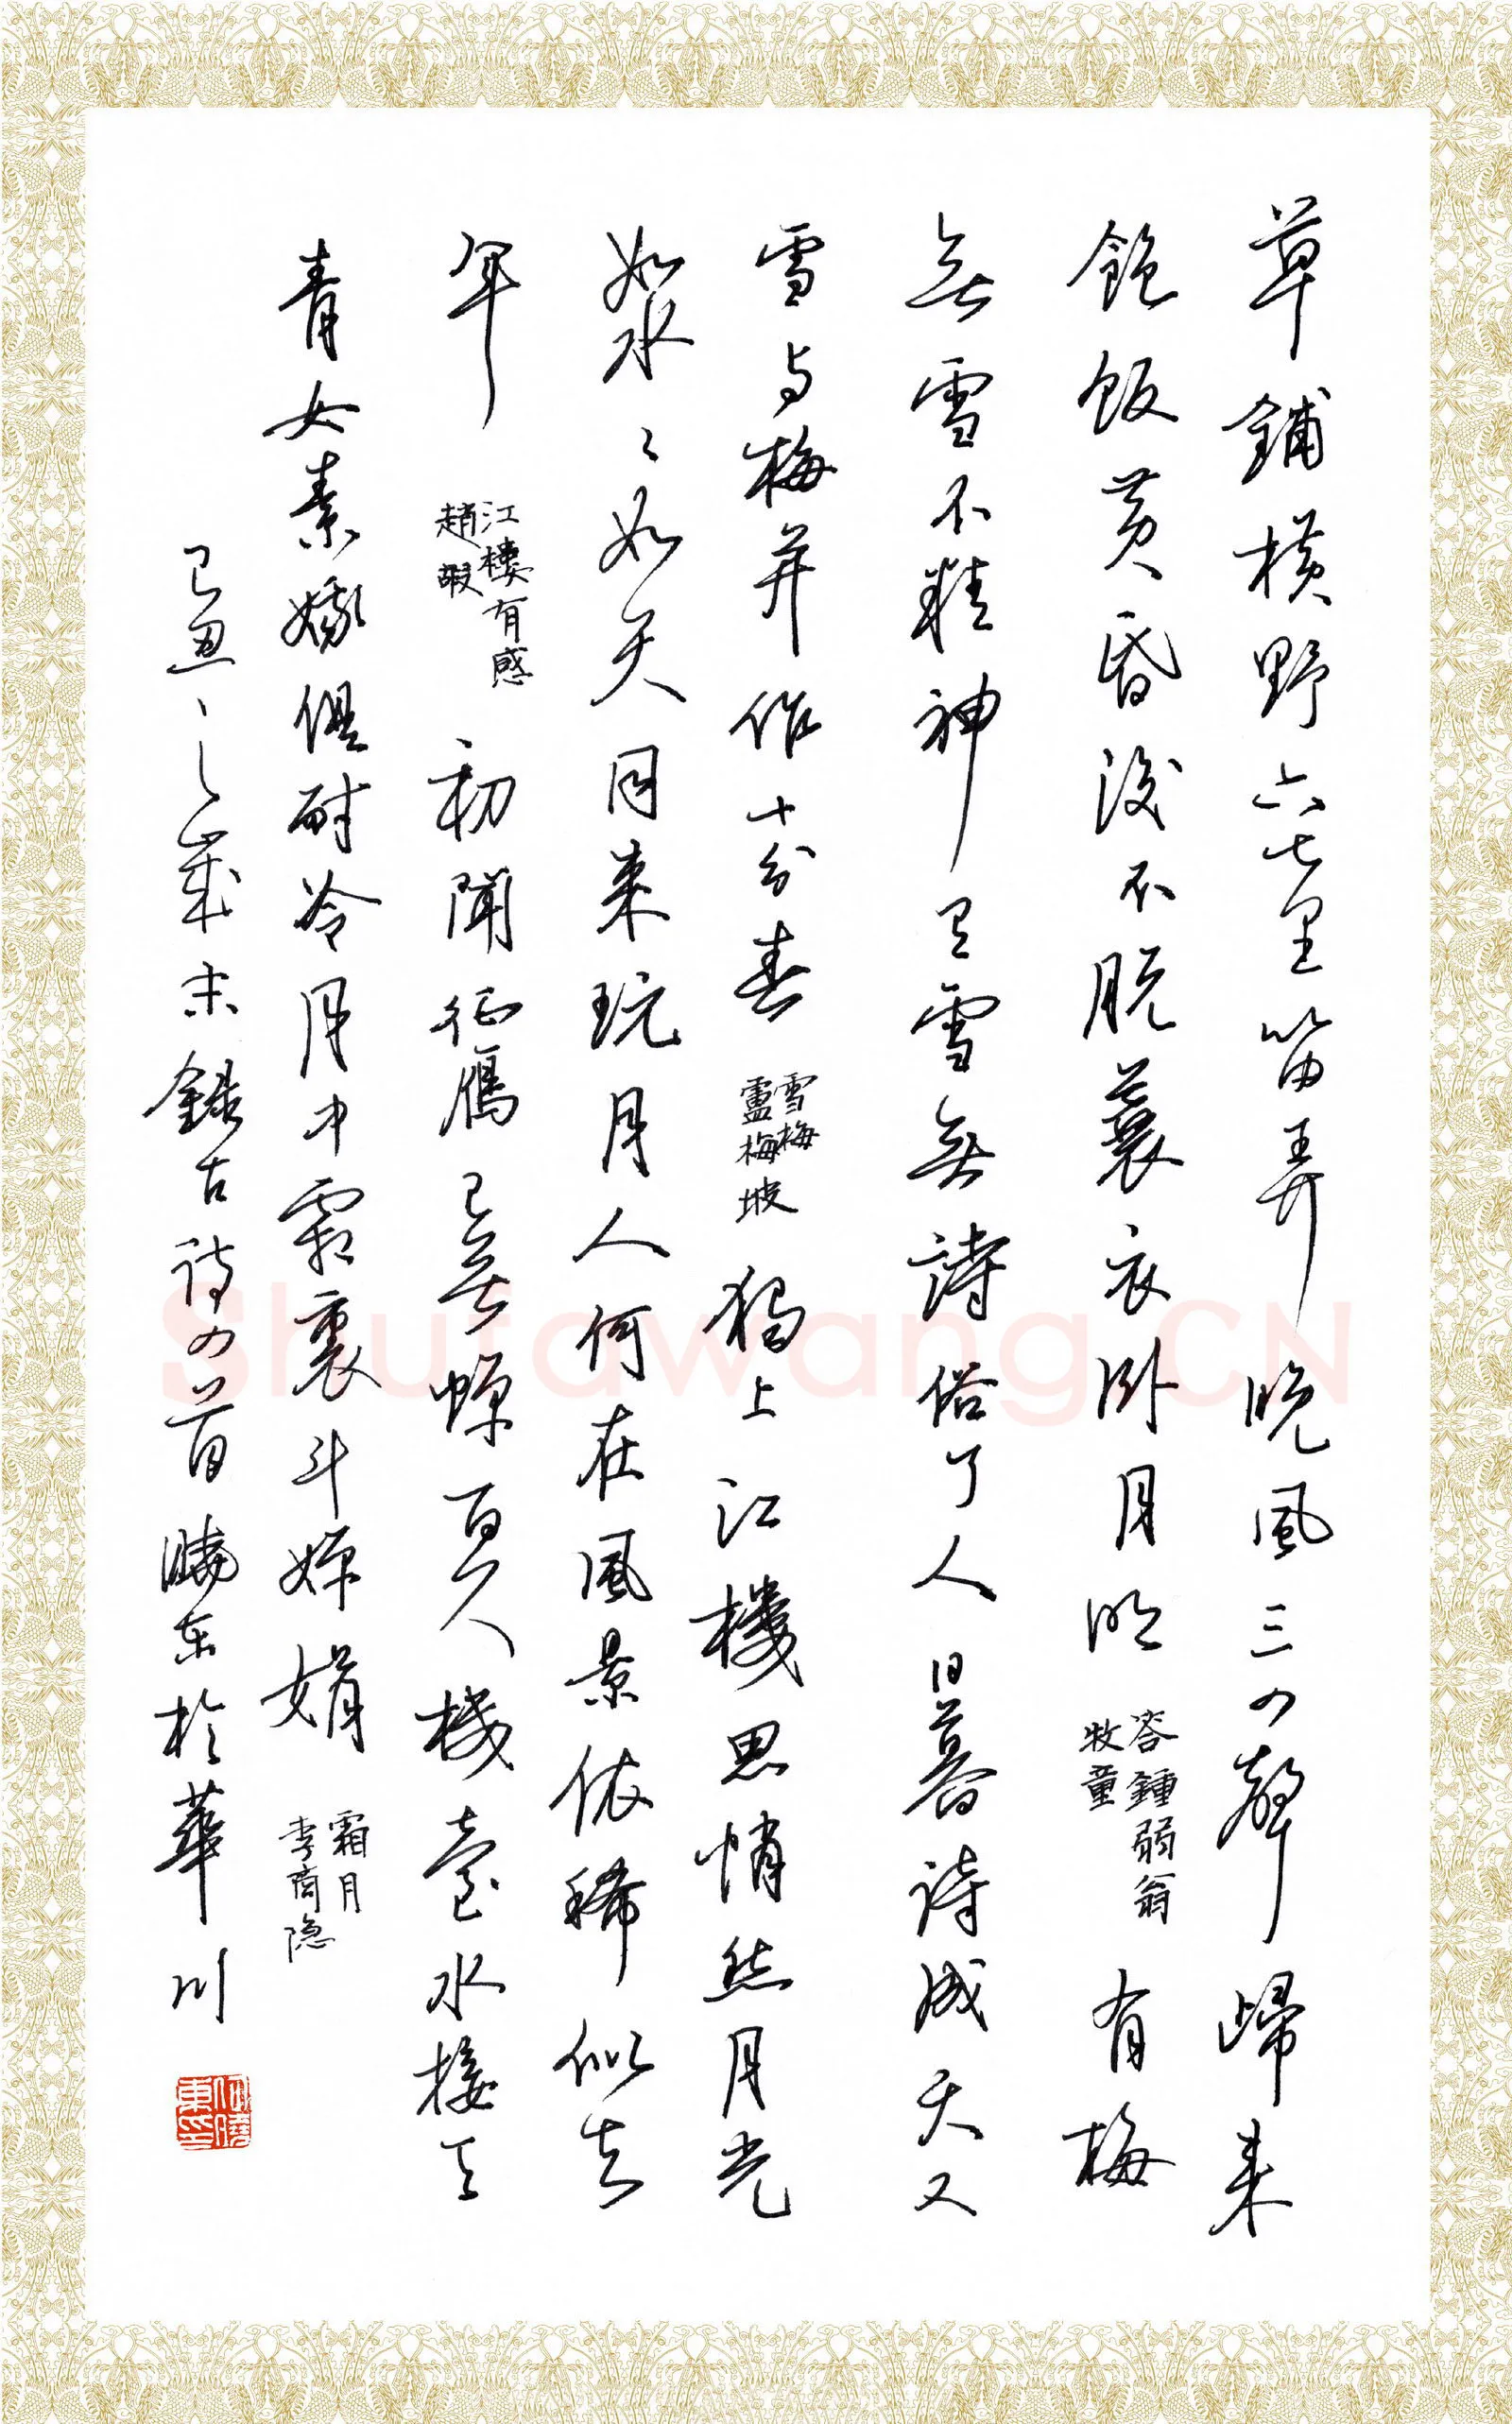 草鋪橫野六七里笛弄晚風三四聲歸來
飽飯黃昏後不脫蓑衣卧月明
答鍾弱翁
牧童
有梅
無雪不精神有雪無詩俗了人日暮詩成天又
雪与梅并作十分春
雪梅
盧梅坡
獨上江樓思悄然月光
如水水如天同來玩月人何在風景依稀似去
年
江樓有感
趙嘏
初聞征鴈已無蟬百尺樓臺水接天
青女素娥俱耐冷月中霜裏斗嬋娟
霜月
李商隐
己丑之歲末錄古詩四首曉東於華川
Shufawang.CN